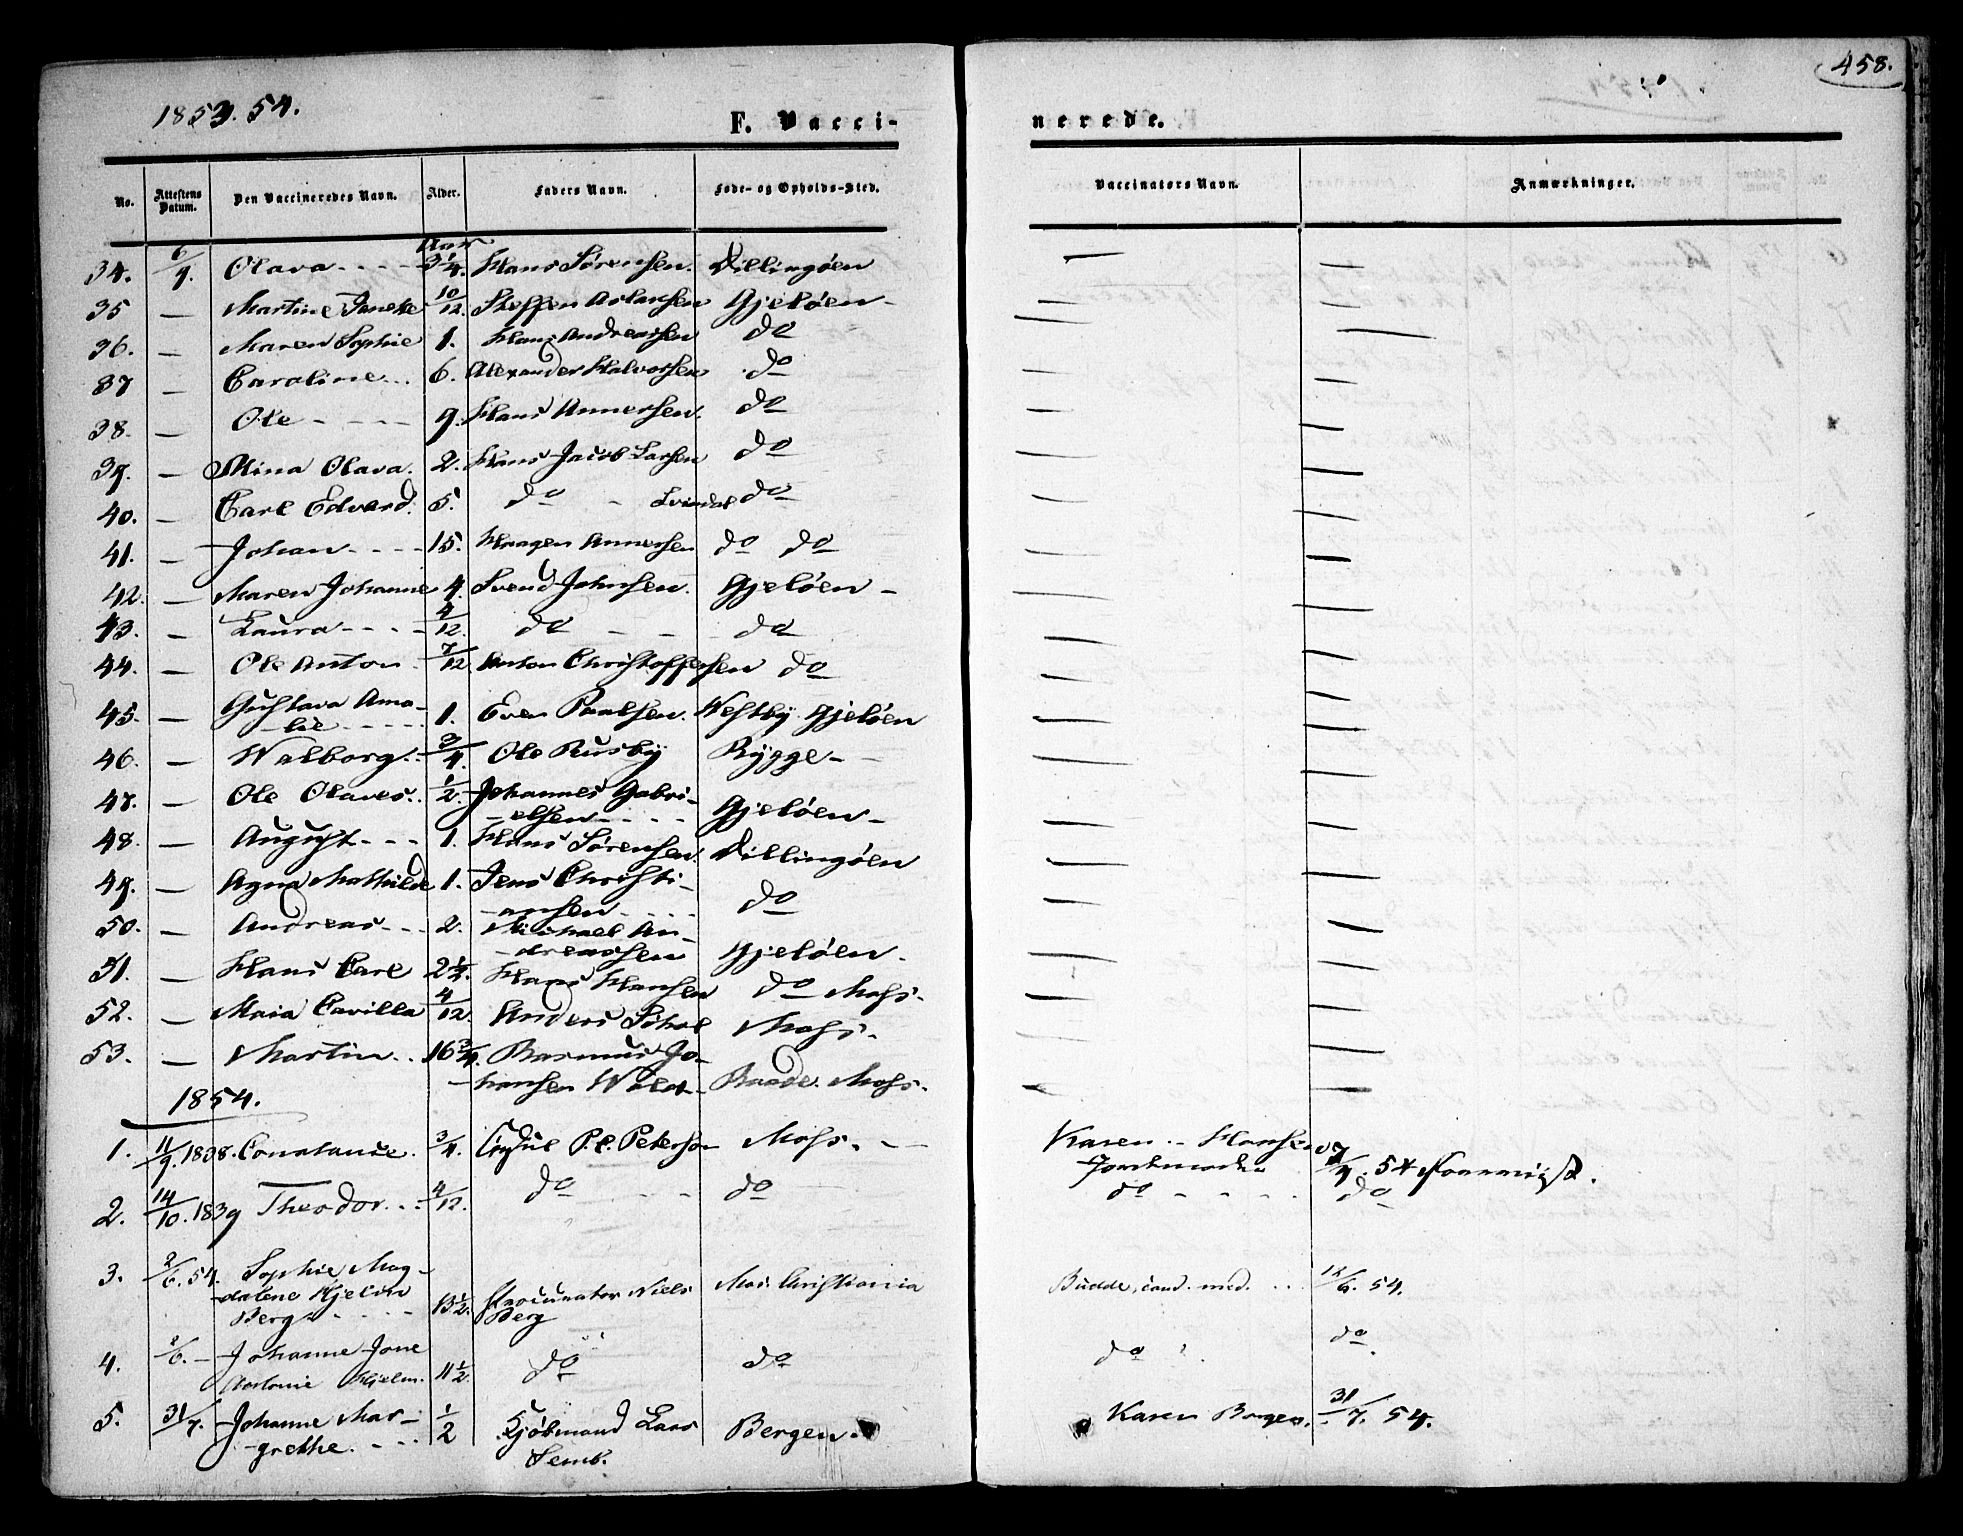 458.
1853. 54.
F. Vacci-
nerede.
No. Attestens Datum. Den Vaccineredes Navn. Alder. Faders Navn. Føde- og Opholds-Sted. Vaccinators Navn. Anmærkninger.
Aar
34. 6/9. Olava - - - - 3 1/4. Hans Sörensen. Dillingöen — —
35 — Martine 10/12. Steffen Gjelöen — — —
36. — Maren Sophie 1. Hans Andreassen do — —
37 — Caroline... 6. Alexander Halvorsen do — —
38. — Ole - - - - 9. Hans Annersen. do — —
39. — Mina Olava. 2. Hans Jacob Larsen do — —
40. — Carl Edvard. 5. do - do — —
41. — Johan - - - - 15. Haagen Annersen do do — —
42. — Maren Johanne 4. Svend Johnsen. Gjelöen — — —
43. — Laura - - - - 4/12. do - - do — —
44. — Ole Anton. 7/12. Anton Christoffersen do — —
45. — Gustava Ama-
lie - - - - 1. Even Paulsen. Westby Gjelöen — —
46. — Walborg.. 3/4. Ole Rusby Rygge — — —
47. — Ole Olaves.. 1/2. Johannes Gabri-
-elsen - - - - Gjelöen — — —
48. — August - - - 1. Hans Sörensen. Dillingöen — —
49. — Agna Mathilde 1. Jens Christi-
-ansen - - - do — —
50. — Andreas - - - 2. Michael An-
-dreassen Gjelöen. — —
51. — Hans Carl 2 1/2. Hans Hansen do Moss. — —
52. — Maia Cavilla 4/12. Anders Moss. — —
53. — Martin.. 16 3/4. Rasmus Jo-
hansen Moss. — —
1854.
1. 11/9. 1838. Constance. 3/4. P. C. Peterson Moss. — Karen - Hansen
Jordmoder 54
2. 14/10. 1839 Theodor... 4/12. do - - do do - - - - do
3. 2/6. 54. Sophie Mag-
-dalene Hjelm
Berg - - - - 13 1/2. Procurator Niels
Berg Christiania Budde, cand. med. ... 12/6. 54.
4. 2/6. — Johanne
Antonie Hjelm. 11 1/2. do do do do.
5. 31/7. Johanne Mar-
-grethe. - - - 1/2 Kjöbmand Lars
Semb. Bergen. Karen 31/7. 54.